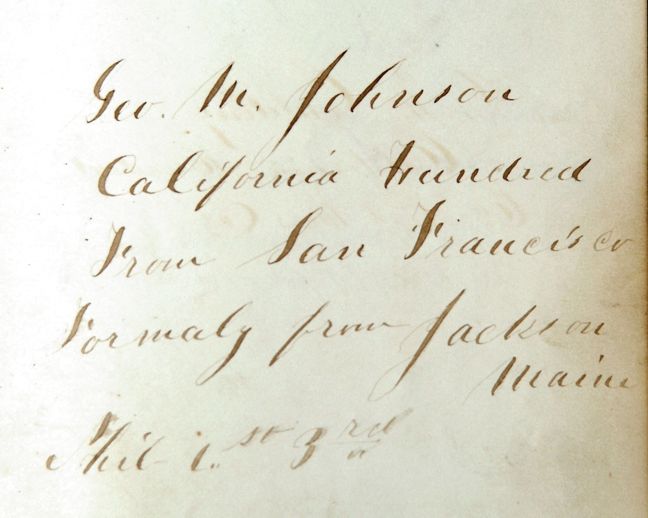 Geo. M. Johnson
California Hundred
From San Francisco
Formaly from Jackson
Maine
Phil 1.st 3rd